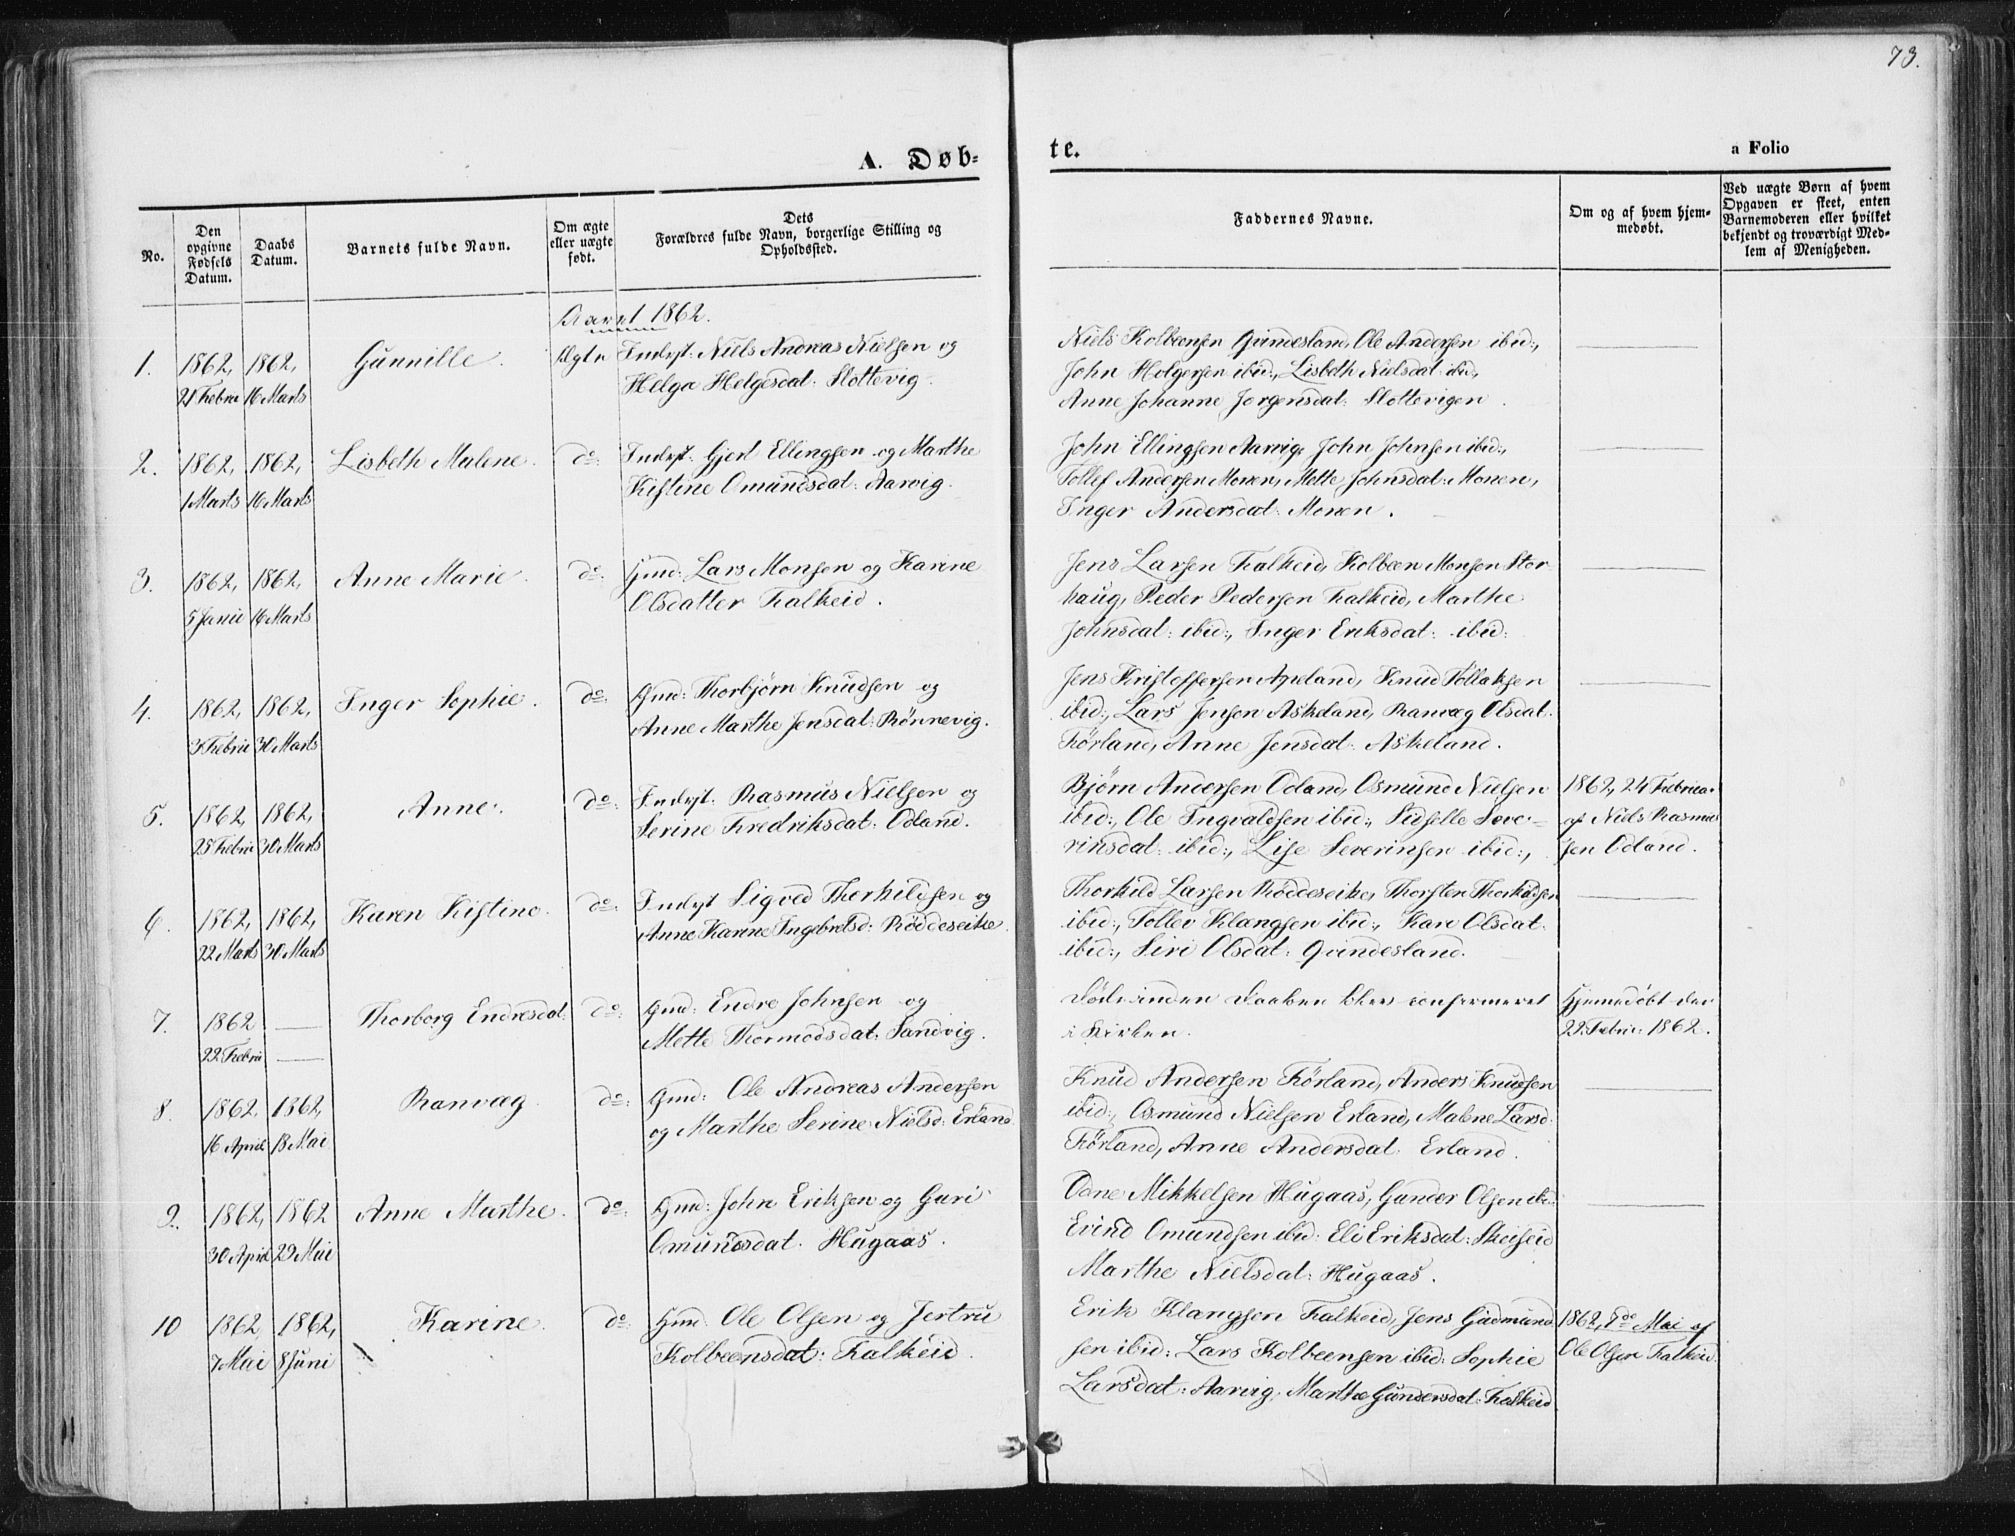 73.
A. Døb-
te.
a Folio
No.
Den opgivne Fødsels Datum.
Daabs Datum.
Barnets fulde Navn.
Om ægte eller uægte født.
Dets Forældres fulde Navn, borgerlige Stilling og Opholdssted.
Faddernes Navne.
Om og af hvem hjemmedøbt.
Ved uægte Børn af hvem Opgaven er skeet, enten Barnemoderen eller hvilket bekjendt og troværdigt Medlem af Menigheden.
Aaret 1862.
1. 1862, 1862, Gunnille. Ægte Indsst: Niels Andreas Nielsen og
21 Febru 16 Marts Helga Helgesdat: Slottevig.
Niels Kolbeensen Grindesland, Ole Andersen ibid:,
John Holgersen ibid:, Lisbeth Nielsdat ibid,
Anne Johanne Jørgensdat: Slottevigen.
2. 1862, 1862, Lisbeth Malene. do: Indsst: Gjert Ellingsen og Marthe
1 Marts 16 Marts Kistine Omundsdat: Aarvig.
John Ellingsen Aarvig, John Johnsen ibid:,
Tollef Andersen Monen, Mette Johnsdat: Monen,
Inger Andersdat: Monen.
3. 1862, 1862, Anne Marie. do: Gmd: Lars Monsen og Karine
5 Janu 16 Marts Olsdatter Falkeid.
Jens Larsen Falkeid, Kolbeen Monsen Stor
haug, Peder Pedersen Falkeid, Marthe
Johnsdat: ibid:, Inger Eriksdat: ibid:
4. 1862, 1862, Inger Sophie. do: Gmd: Thorbjørn Knudsen og
3 Febru 30 Marts Anne Marthe Jensdat: Rønnevig.
Jens Kristoffersen Apeland, Knud Tollaksen
ibid:, Lars Jensen Askeland, Ranvæg Olsdat:
Førland, Anne Jensdat: Askeland.
5. 1862, 1862, Anne. do: Indsst: Rasmus Nielsen og
23 Febru 30 Marts Serine Fredriksdat: Odland.
Bjørn Andersen Odland, Osmund Nielsen
ibid:, Ole Ingvaldsen ibid:, Sidselle Seve-
rinsdat: ibid:, Lise Severinsen ibid:,
1862, 24 Februar
af Niels Rasmus
sen Odland.
6. 1862, 1862, Karen Kistine. do: Indsst Sigved Thorkildsen og
22 Marts 30 Marts Anne Karine Ingebretsd: Røddeseike.
Thorkild Larsen Røddeseike, Thorsten Thorkildsen
ibid:, Tollev Klængsen ibid:, Kari Olsdat:
ibid:, Siri Olsdat: Grindesland.
7. 1862 Thorborg Endresdat: do: Gmd: Endre Johnsen og
22 Febru Mette Thormodsdat: Sandvig.
Døde inden Daaben blev confirmeret
i Kirken.
Hjemmedøbt den
22 Febru: 1862.
8. 1862, 1862, Ranvæg. do: Gmd: Ole Andreas Andersen
16 April 18 Mai og Marthe Serine Nielsd: Erland
Knud Andersen Førland, Anders Knudsen
ibid:, Osmund Nielsen Erland, Malene Larsd:
Førland, Anne Andersdat: Erland.
9. 1862, 1862 Anne Marthe. do: Gmd: John Eriksen og Guri
30 April 29 Mai Omundsdat: Hugaas.
Odne Mikkelsen Hugaas, Gunder Olsen ibid:
Evind Omundsen ibid: Eli Eriksdat: Skeiseid
Marthe Nielsdat: Hugaas.
10 1862, 1862, Karine. do: Gmd. Ole Olsen og Jertru
7 Mai 8 Juni Kolbeensdat: Falkeid.
Erik Klangsen Falkeid, Jens Gudmund
sen ibid: Lars Kolbeensen ibid: Sophie
Larsdat: Aarvig, Marthe Gundersdat: Falkeid
1862, 8de Mai af
Ole Olsen Falkeid.